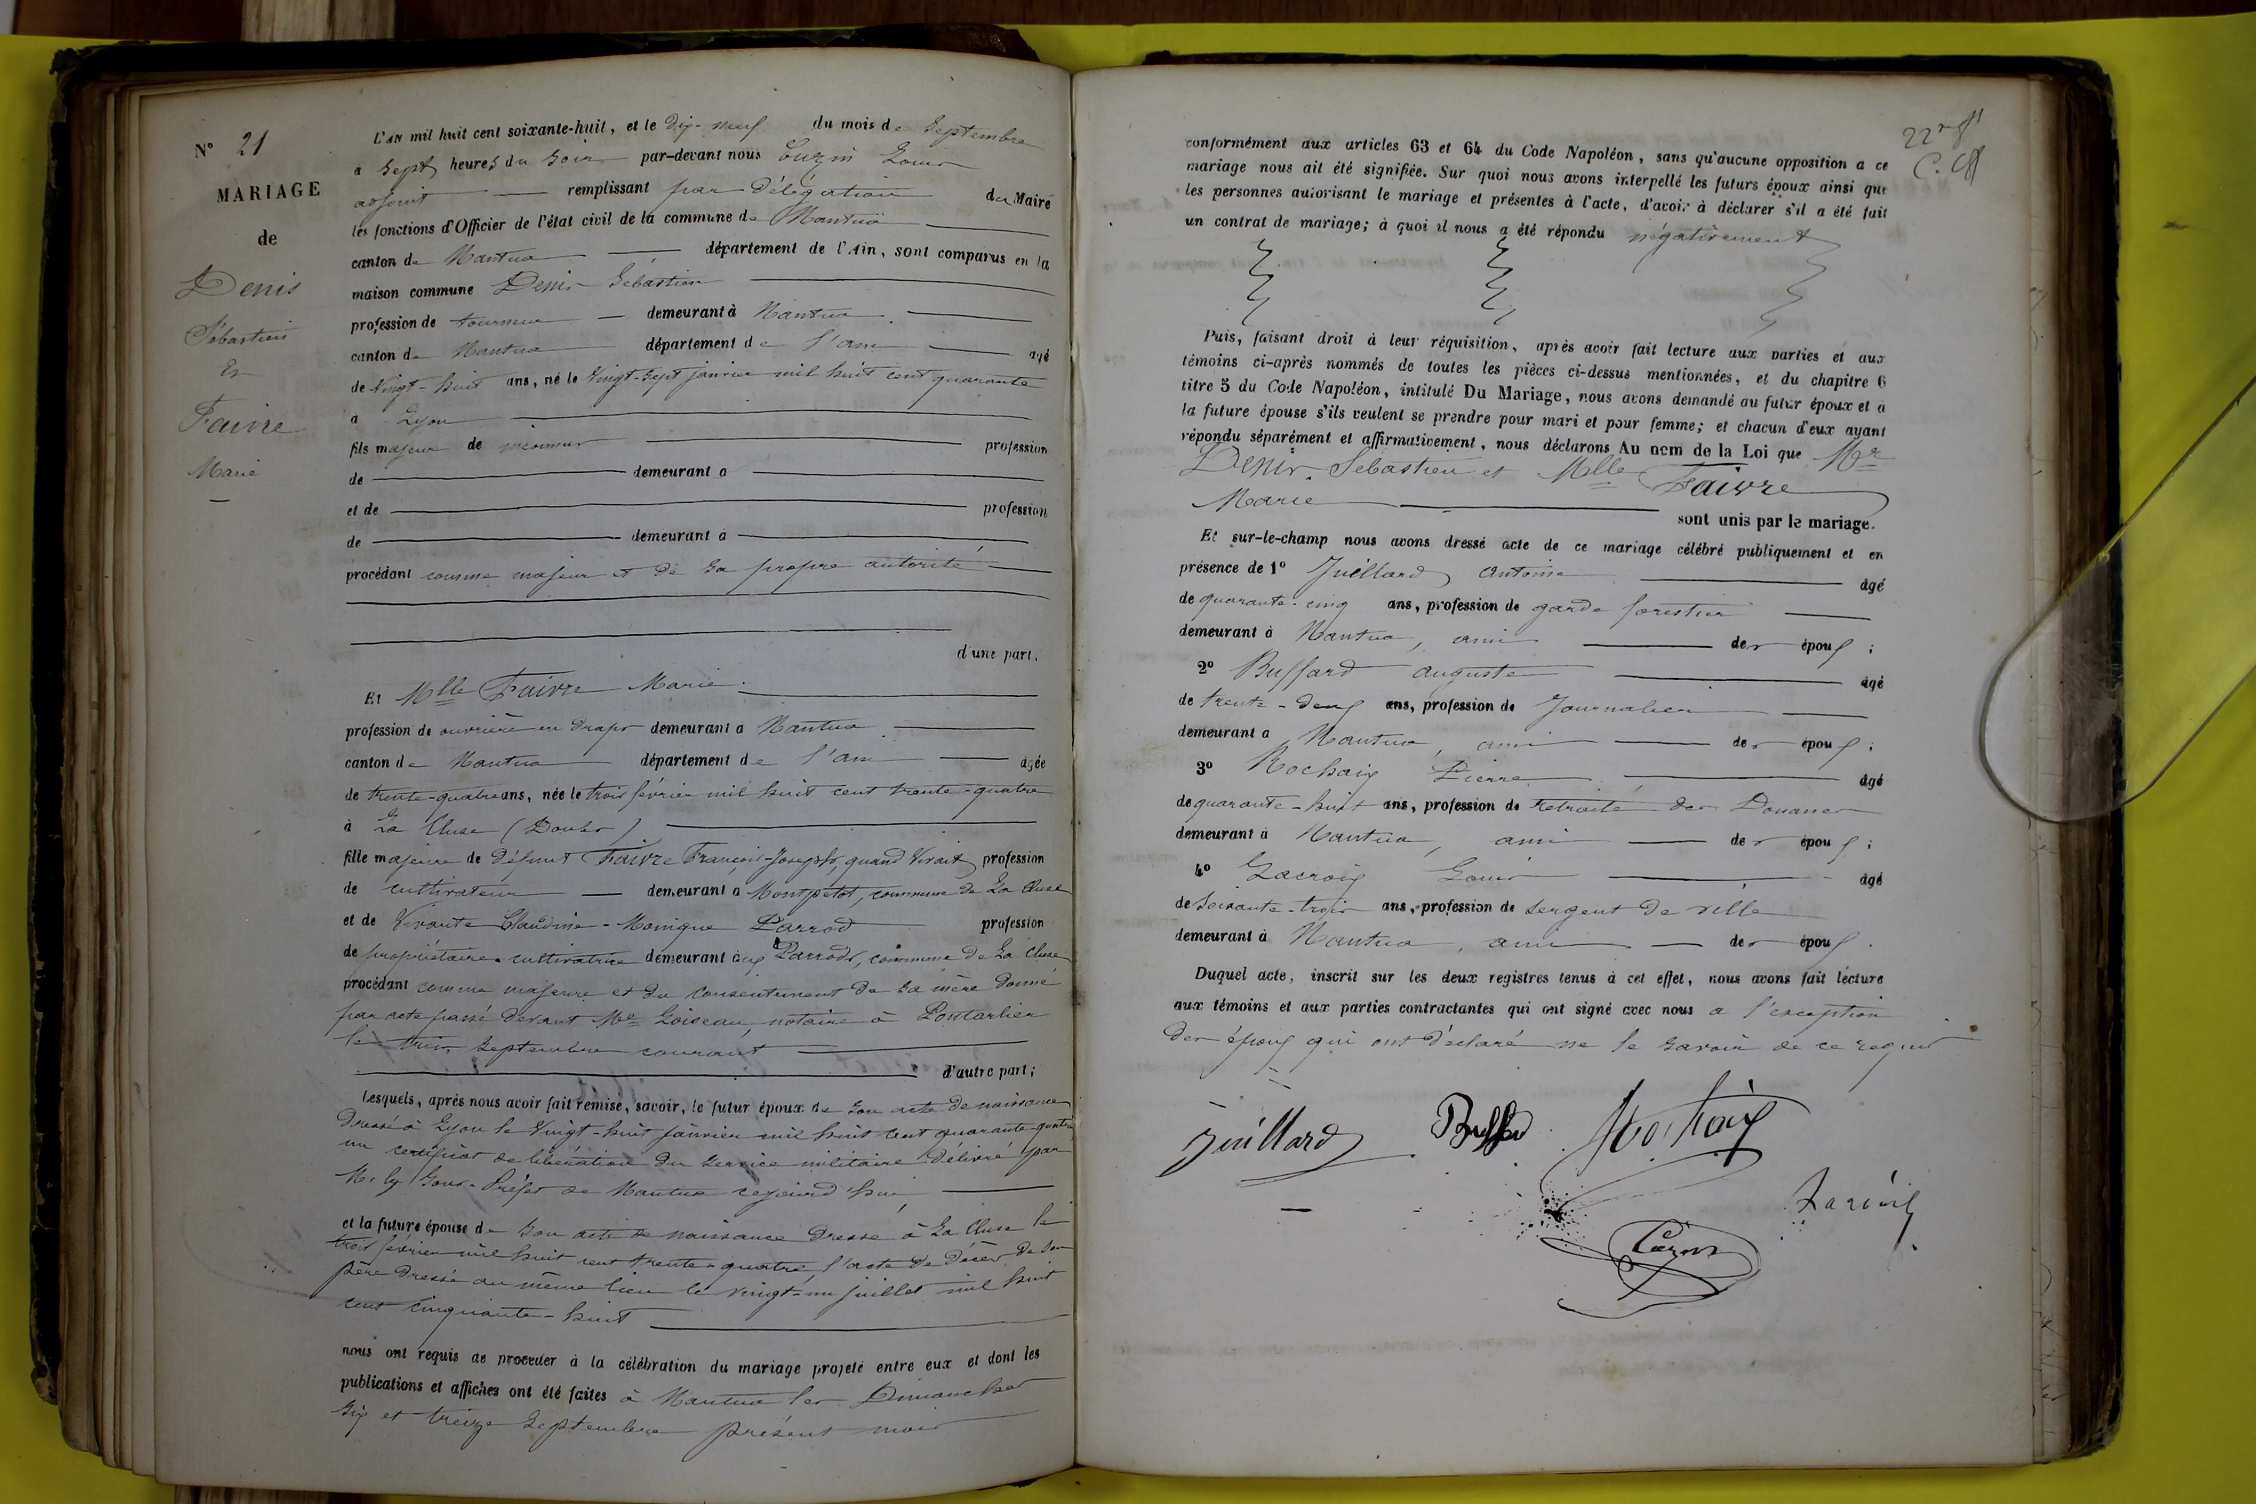 N° 21
MARIAGE
de
Denis
Sébastien
Et
Faivre
Marie
L'an mil huit cent soixante-huit, et le Dix-neuf du mois de Septembre
a Sept heures du Soir par-devant nous Louis
adjoint remplissant par Délégation du Maire
les fonctions d'Officier de l'état civil de la commune de Nantua
canton de Nantua département de l'Ain, sont comparus en la
maison commune Denis Sébastien
profession de tourneur demeurant à Nantua
canton de Nantua département de l'ain agé
de Vingt-huit ans, né le Vingt-Sept janvier mil huit cent quarante
a Lyon
fils majeur de inconnus profession
de demeurant a
et de profession
de demeurant à
procédant comme majeur et de sa propre autorité
d'une part.
Et Mlle Faivre Marie
profession de ouvrière en draps demeurant a Nantua
canton de Nantua département de l'ain agée
de trente-quatre ans, née le trois février mil huit cent trente-quatre
à La Cluse (Doubs)
fille majeure de défunt Faivre François-Joseph, quand Vivait profession
de cultivateur demeurant à Montpetot, commune de La Cluse
et de Vivante Claudine-Monique Parrod profession
de propriétaire cultivatrice demeurant aux Parrods, commune de La Cluse
procédant comme majeure et du consentement de sa mère donné
par acte passé devant Me Loiseau notaire à Pontarlier
le trois Septembre courant
d'autre part;
Lesquels, après nous avoir fait remise, savoir, le futur époux de Son acte de naissance
Dressé à Lyon le Vingt-huit janvier mil huit cent quarante
un certificat de libération du Service militaire délivré par
Mr le Sous-Préfet de Nantua cejourd'hui
et la future épouse de Son acte de naissance dressé à La Cluse le
trois février mil huit cent trente-quatre, l'acte de Décès de Son
père Dressé au même lieu le vingt-un juillet mil huit
cent cinquante-huit
nous ont requis de procéder à la célébration du mariage projeté entre eux et dont les
publications et affiches ont été faites à Nantua les Dimanches
Six et treize Septembre présent mois
22
conformément aux articles 63 et 64 du Code Napoléon, sans qu'aucune opposition a ce
mariage nous ait été signifiée. Sur quoi nous avons interpellé les futurs époux ainsi que
les personnes autorisant le mariage et présentes à l'acte, d'avoir à déclarer s'il a été fait
un contrat de mariage; à quoi il nous a été répondu négativement
Puis, faisant droit à leur réquisition, après avoir fait lecture aux parties et aux
témoins ci-après nommés de toutes les pièces ci-dessus mentionnées, et du chapitre 6
titre 5 du Code Napoléon, intitulé Du Mariage, nous avons demandé au futur époux et à
la future épouse s'ils veulent se prendre pour mari et pour femme; et chacun d'eux ayant
répondu séparément et affirmativement, nous déclarons Au nom de la Loi que Mr
Denis Sébastien et Mlle Faivre
Marie
sont unis par le mariage.
Et sur-le-champ nous avons dressé acte de ce mariage célébré publiquement et en
présence de 1° Juillard Antoine âgé
de quarante-cinq ans, profession de garde forestier
demeurant à Nantua, ami des époux;
2° Buffard Auguste âgé
de trente-deux ans, profession de Journalier
demeurant a Nantua, ami des époux;
3° Rochaix Pierre âgé
de quarante-huit ans, profession de retraité des Douanes
demeurant à Nantua, ami des époux;
4° Lacroix Louis âgé
de Soixante-trois ans, profession de Sergent de ville
demeurant à Nantua, ami des époux.
Duquel acte, inscrit sur les deux registres tenus à cet effet, nous avons fait lecture
aux témoins et aux parties contractantes qui ont signé avec nous a l'exception
des époux qui ont déclaré ne le savoir de ce requis
Juillard Buffard Rochaix
Lacroix